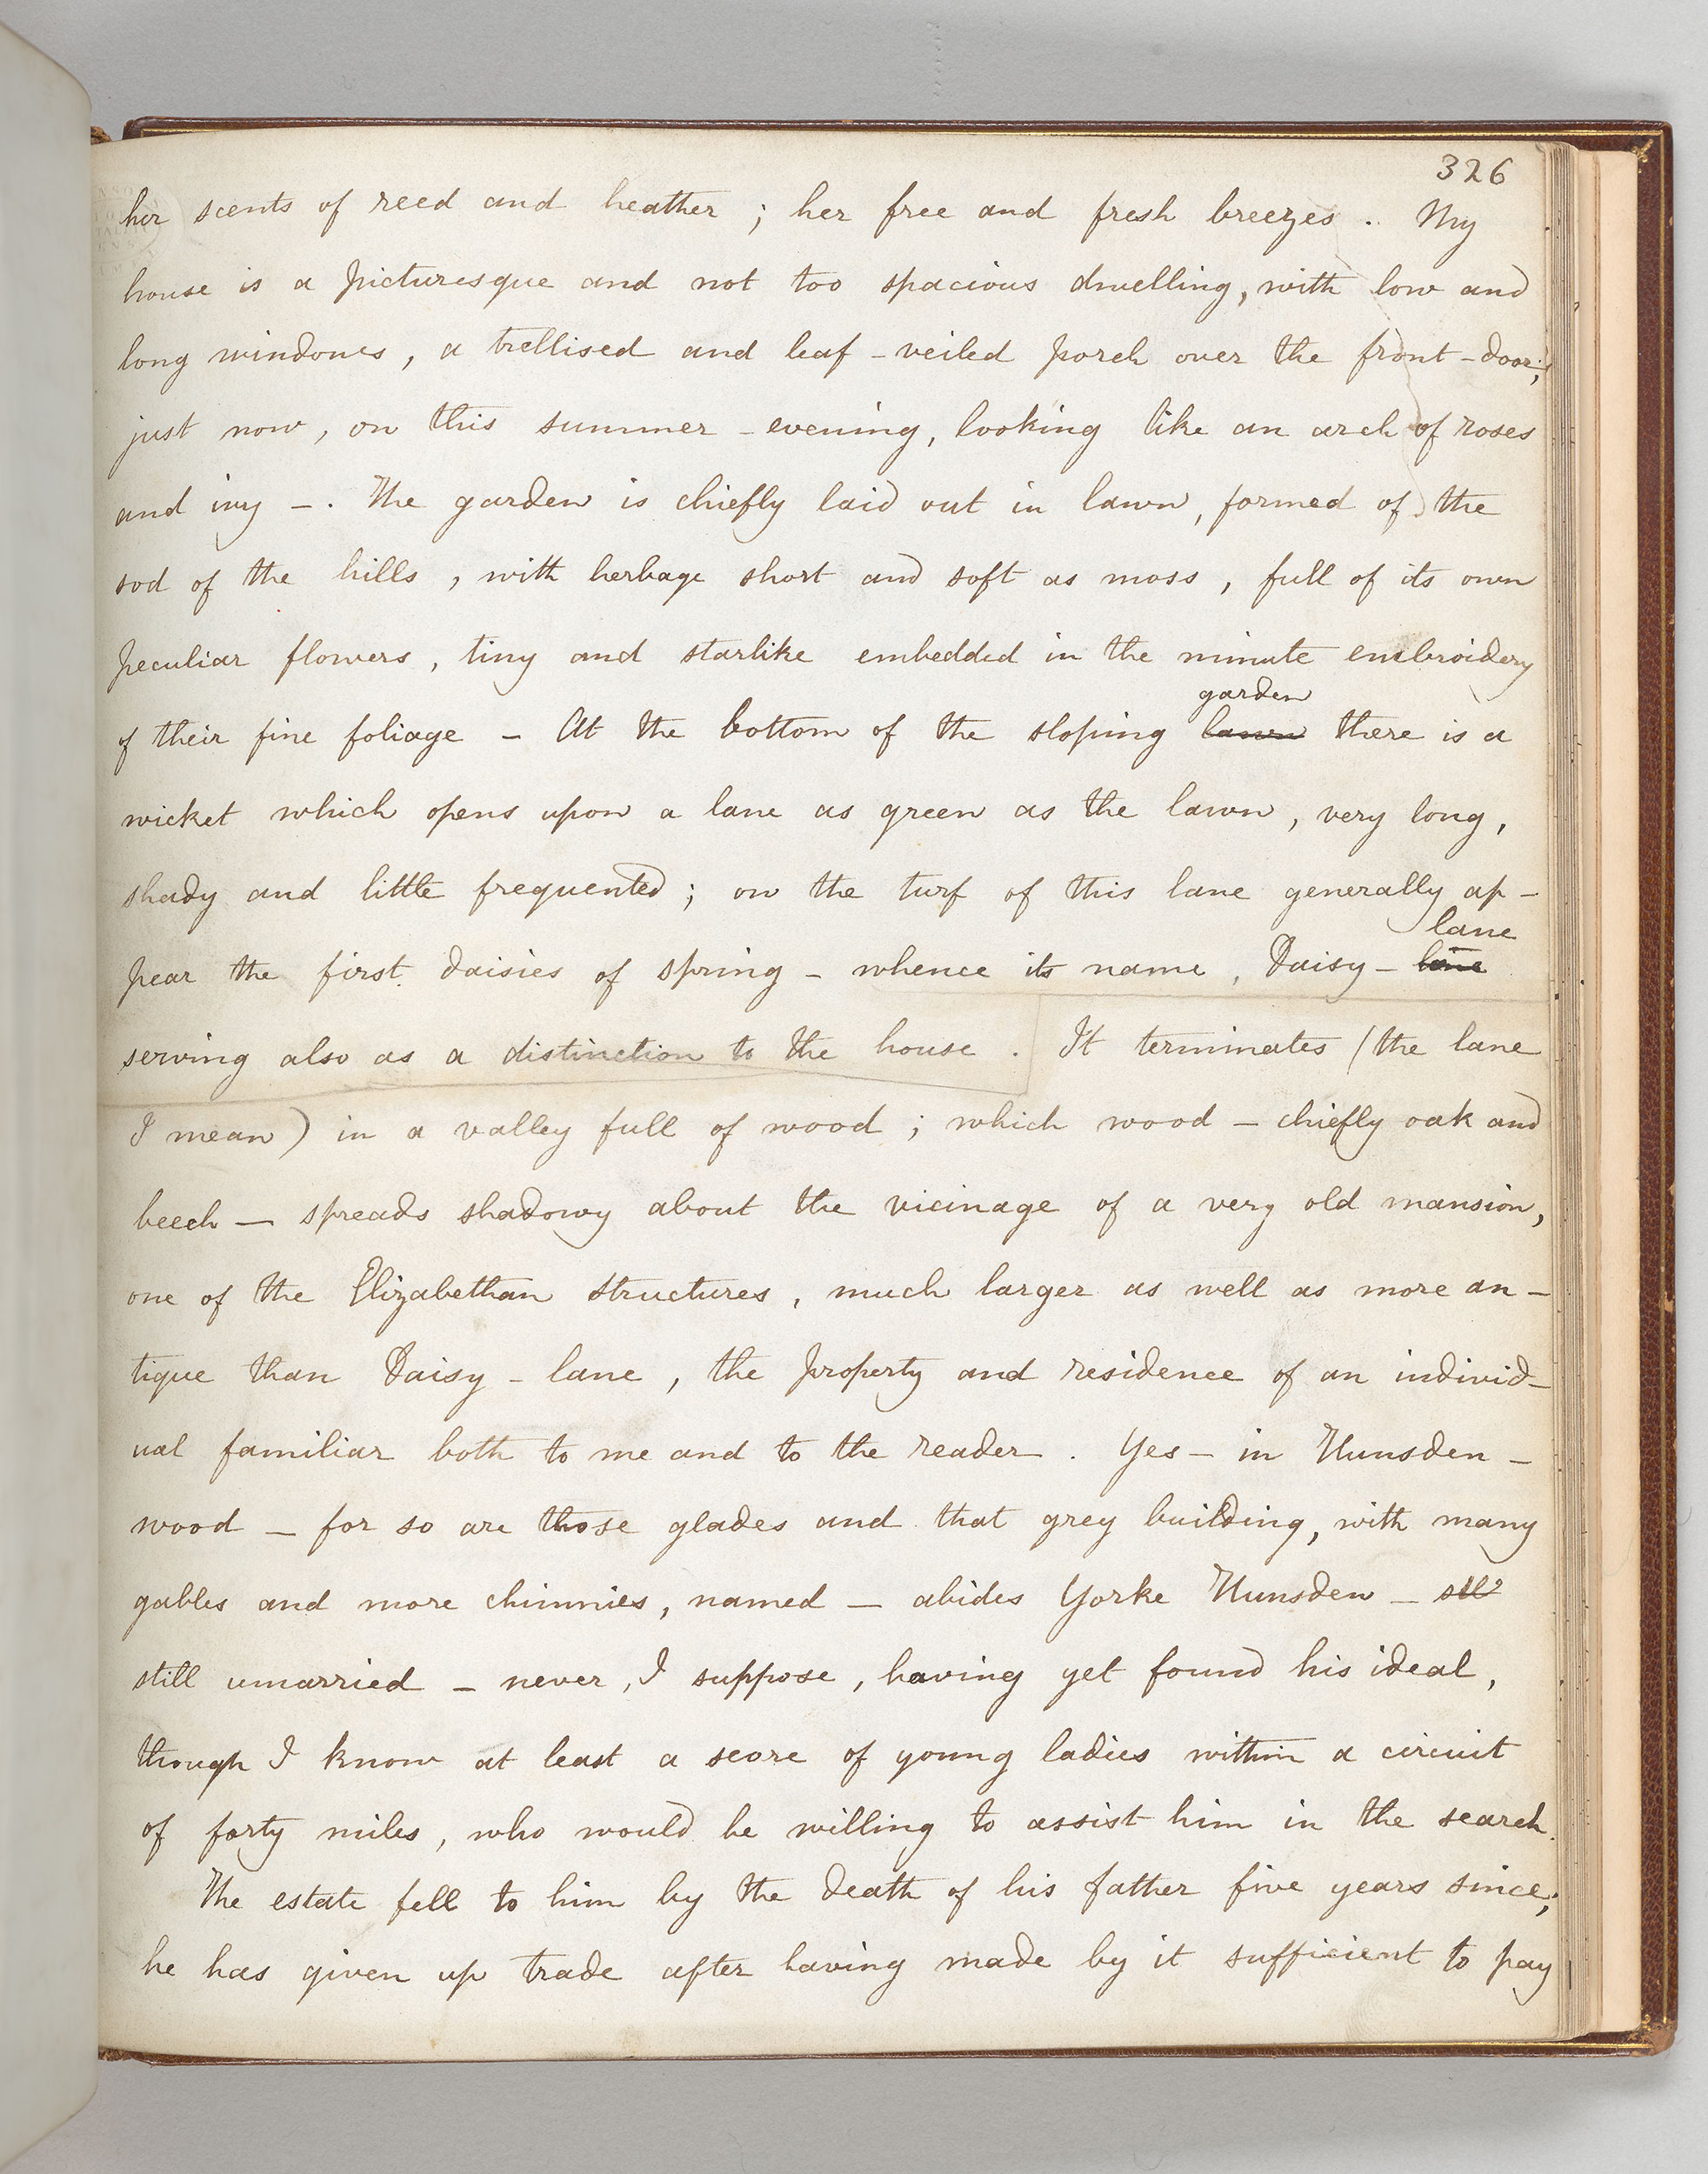 326
her scents of reed and heather ; her free and fresh breezes . My
house is a picturesque and not too spacious dwelling, with low and
long windows, a trellised and leaf-veiled porch over the front-door;
just now, on this summer-evening, looking like an arch of roses
and ivy -. The garden is chiefly laid out in lawn, formed of the
sod of the hills, with herbage short and soft as moss, full of its own
peculiar flowers, tiny and starlike embedded in the minute embroidery
garden
of their fine foliage - At the bottom of the sloping lawn there is a
wicket which opens upon a lane as green as the lawn, very long,
shady and little frequented; on the turf of this lane generally ap-
lane
pear the first daisies of spring - whence its name, Daisy- lane
serving also as a distinction to the house. It terminates (the lane
I mean) in a valley full of wood; which wood - chiefly oak and
beech - spreads shadowy about the vicinage of a very old mansion,
one of the Elizabethan structures, much larger as well as more an-
tique than Daisy-lane, the property and residence of an individ-
ual familiar both to me and to the reader. Yes - in Hunsden-
wood - for so are those glades and that grey building, with many
gables and more chimnies, named - abides Yorke Hunsden - still
still unmarried - never, I suppose, having yet found his ideal,
though I know at least a score of young ladies within a circuit
of forty miles, who would be willing to assist him in the search.
The estate fell to him by the death of his father five years since;
he has given up trade after having made by it sufficient to pay